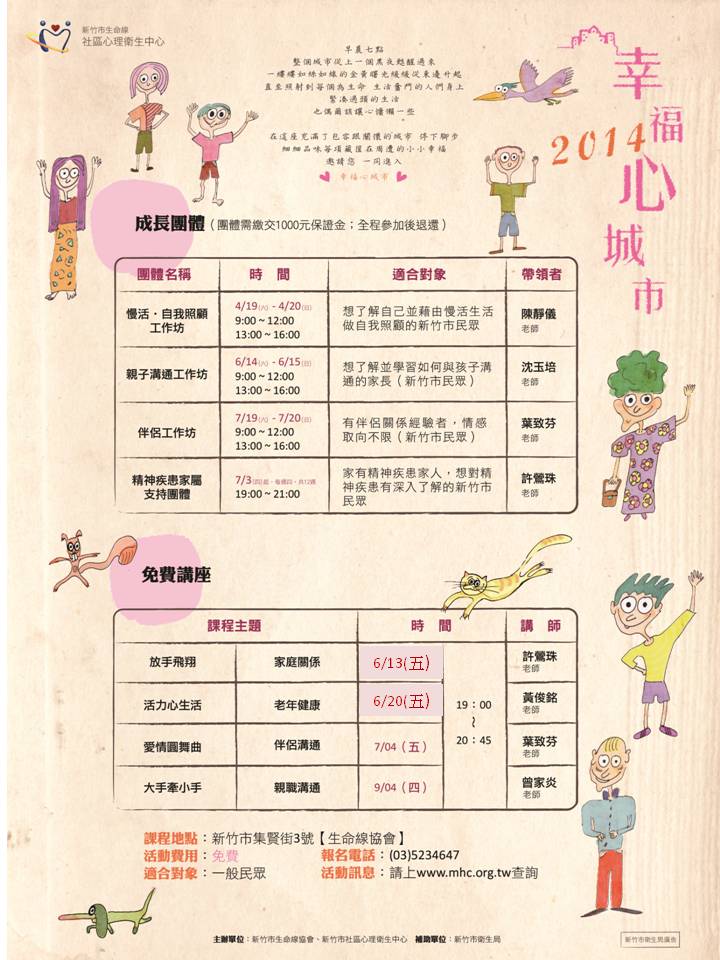 新竹市生命線
社區心理衛生中心
早晨七點
整個城市從上一個黑夜甦醒過來
一縷縷如絲如線的金黃曙光緩緩從東邊升起
直至照射到每個為生命 生活奮鬥的人們身上
緊湊過頭的生活
也偶爾該讓心慵懶一些
在這座充滿了包容跟關懷的城市 停下腳步
細細品味每項藏匿在周遭的小小幸福
邀請您 一同進入
幸福心城市
2014
幸福心城市
成長團體（團體需繳交1000元保證金；全程參加後退還）
團體名稱 時 間 適合對象 帶領者
慢活・自我照顧
工作坊
4/19(六) - 4/20(日)
9:00 ~ 12:00
13:00 ~ 16:00
想了解自己並藉由慢活生活
做自我照顧的新竹市民眾
陳靜儀
老師
親子溝通工作坊
6/14(六) - 6/15(日)
9:00 ~ 12:00
13:00 ~ 16:00
想了解並學習如何與孩子溝
通的家長（新竹市民眾）
沈玉培
老師
伴侶工作坊
7/19(六) - 7/20(日)
9:00 ~ 12:00
13:00 ~ 16:00
有伴侶關係經驗者，情感
取向不限（新竹市民眾）
葉致芬
老師
精神疾患家屬
支持團體
7/3(四)起，每週四，共12週
19:00 ~ 21:00
家有精神疾患家人，想對精
神疾患有深入了解的新竹市
民眾
許鶯珠
老師
免費講座
課程主題 時 間 講 師
放手飛翔 家庭關係 6/13(五) 許鶯珠
老師
活力心生活 老年健康 6/20(五) 黃俊銘
老師
19：00
~
20：45
愛情圓舞曲 伴侶溝通 7/04（五） 葉致芬
老師
大手牽小手 親職溝通 9/04（四） 曾家炎
老師
課程地點：新竹市集賢街3號【生命線協會】
活動費用：免費 報名電話：(03)5234647
適合對象：一般民眾 活動訊息：請上www.mhc.org.tw查詢
主辦單位：新竹市生命線協會、新竹市社區心理衛生中心 補助單位：新竹市衛生局
新竹市衛生局廣告